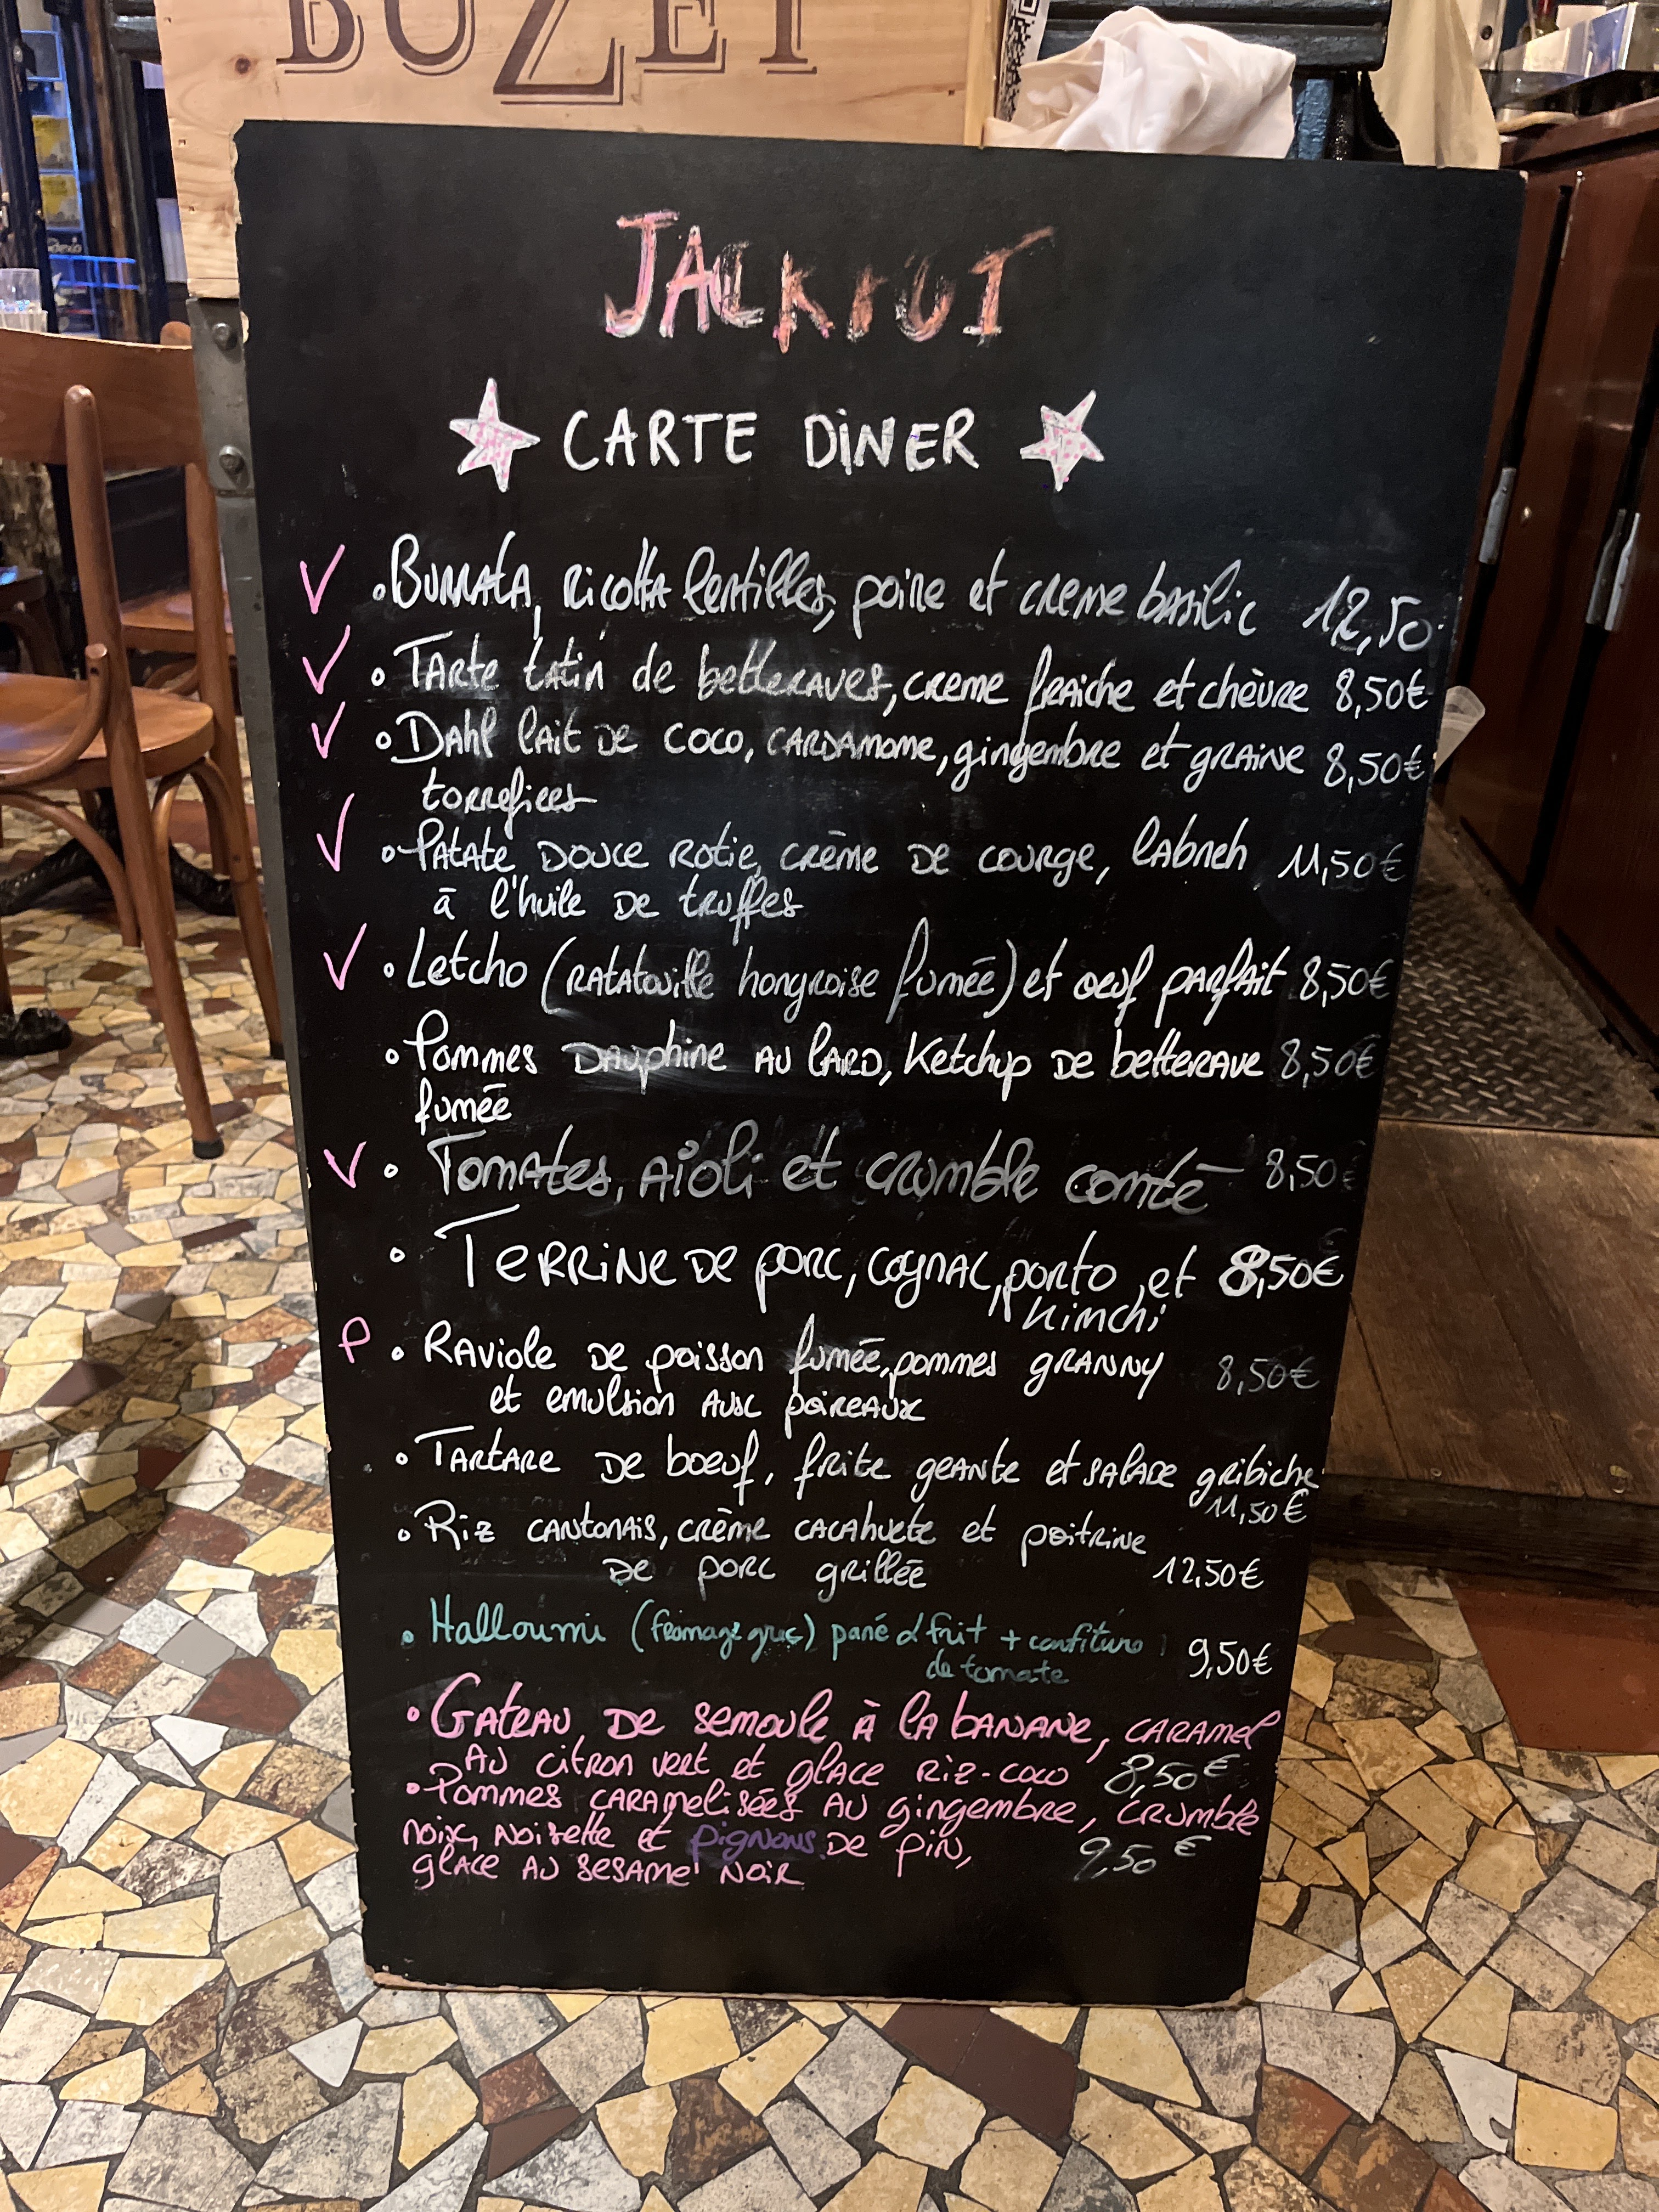 BUZET
JACKPOT
CARTE DiNER
V • Burrata, Ricotta lentilles, poire et creme basilic 12,50
V • Tarte tatin de betteraves, creme fraiche et chèvre 8,50€
V • Dahl lait de coco, cardamome, gingembre et graine 8,50€
torrefiees
V • Patate douce rotie, crème de courge, labneh 11,50€
à l'huile de truffes
V • Letcho (ratatouille hongroise fumée) et oeuf parfait 8,50€
• Pommes Dauphine au lard, Ketchup de betterave 8,50€
fumée
V • Tomates, aïoli et crumble comté 8,50€
• Terrine de porc, cognac, porto et 8,50€
Kimchi
P • Raviole de poisson fumée, pommes granny 8,50€
et emulsion aux poireaux
• Tartare de boeuf, frite geante et salade gribiche
11,50€
• Riz cantonais, crème cacahuete et poitrine
de porc grillée 12,50€
• Halloumi (fromage grec) pané & frit + confiture 9,50€
de tomate
• Gateau de semoule à la banane, caramel
au citron vert et glace riz-coco 8,50€
• Pommes caramelisées au gingembre, crumble
noix, noisette et pignons de pin, 9,50€
glace au sesame noir